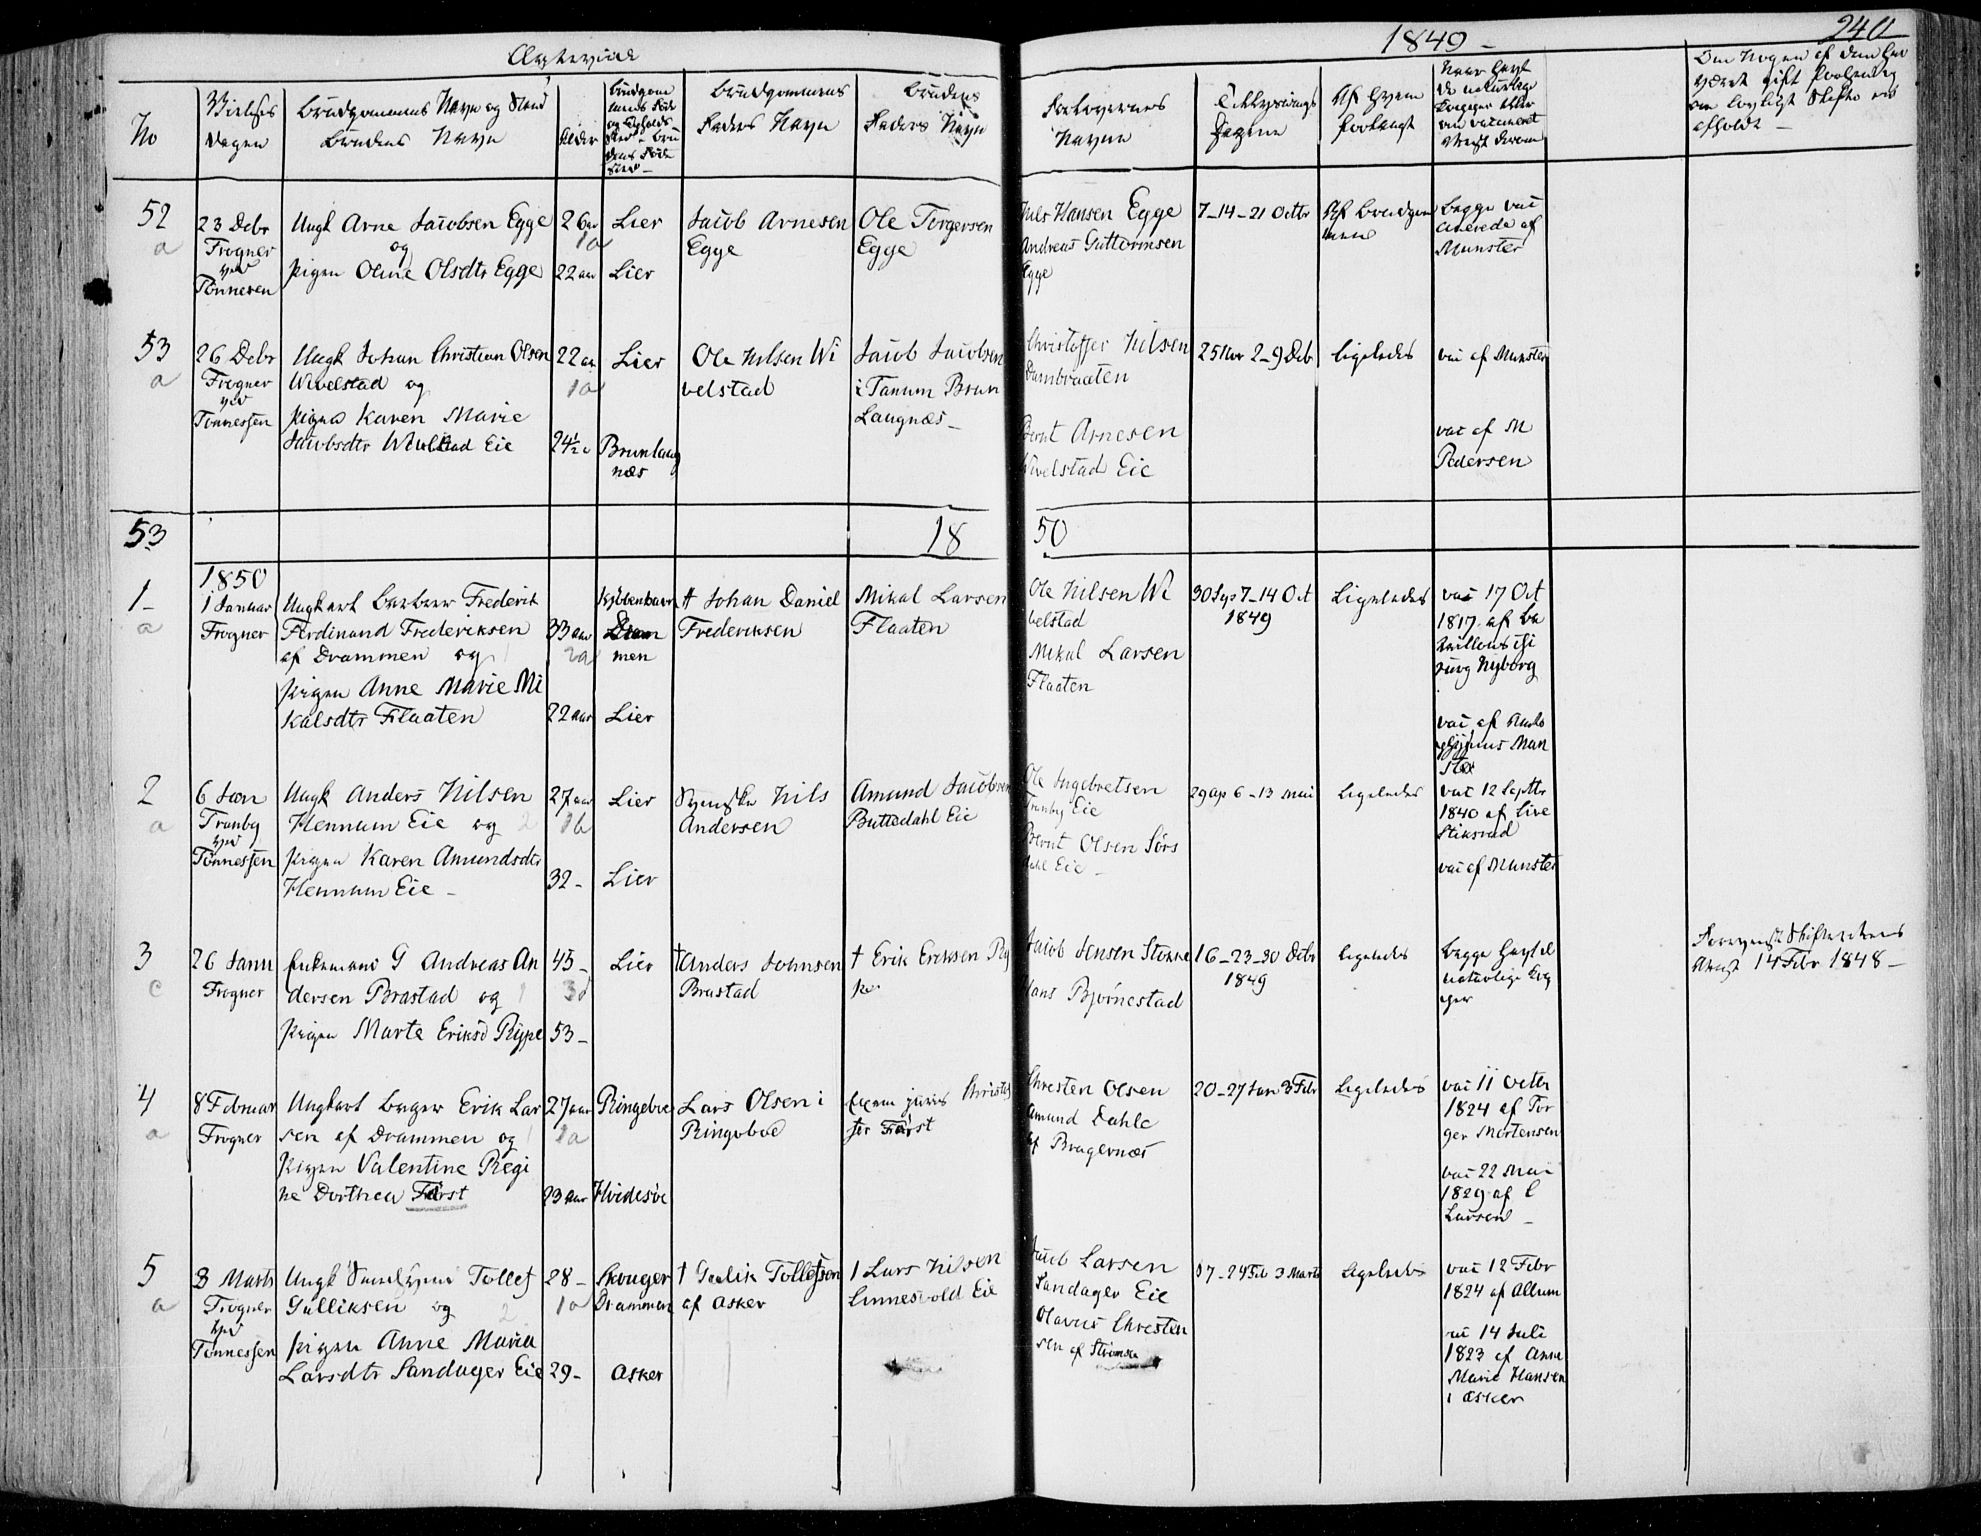 1849 -
240
No
Vielses Dagen
Brudgommens Navn og Stand
Brudens Navn
Alder
Brudgommens Faders Navn
Brudens Faders Navn
Forlovernes Navne
Tillysnings Dagene
Af hvem forlangt
52 a
23 Debr Frogner ved Tønnesen
Ungk Arne Jacobsen Egge
og
Pigen Oline Olsdtr Egge
26 aar 1a
22 aar
Lier
Lier
Jacob Arnesen Egge
Ole Torgersen Egge
Nils Hansen Egge
Andreas Guttormsen Egge
7-14-21 Octbr
Af Brudgommen
Begge vaccinerede af Munster
53 a
26 Debr Frogner ved Tønnessen
Ungk Johan Christian Olsen
Wivelstad og
Pigen Karen Marie
Jacobsdtr Wivelstad Eie
22 aar 1a
24½ a
Lier
Brunlaugnæs
Ole Nilsen Wivelstad
Jacob Jacobsen i Tanum Brunlaugnæs -
Christoffer Nilsen Dambraaten
Bernt Arnesen Wivelstad Eie
25 Nov 2-9 Deb
ligeledes
vac af Munster
vac af M Pedersen
53
18 50
1850
1- a
1 Januar Frogner
Ungkarl Barber Frederik
Ferdinand Frederiksen
af Drammen og
Pigen Anne Marie Mi
kalsdtr Flaaten
33 aar 2a
22 aar
Kjøbenhavn Drammen
Lier
† Johan Daniel Frederiksen
Mikal Larsen Flaaten
Ole Nilsen Wivelstad
Mikal Larsen Flaaten
30 Sep 7-14 Oct 1849
Ligeledes
vac 17 Oct 1817 af Batallions Chirurg Nyborg
2 a
6 Jan Tranby ved Tønnessen
Ungk Anders Nilsen
Hennum Eie og
Pigen Karen Amundsdtr
Hennum Eie -
27 aar 1b
32 -
Lier
Lier
Svenske Nils Andersen
Amund Jacobsen Buttedahl Eie
Ole Ingebretsen Tranby Eie
Bernt Olsen Sørsdahl Eie -
29 Ap 6-13 Mai
Ligeledes
vac 12 Septbr 1840 af Live Stiksrud
vac af Munster
3 c
26 Janu Frogner
Enkemand G Andreas An
dersen Brastad og
Pigen Marte Eriksd Rype
45 - 3d
53 -
Lier
† Anders Johnsen Brastad
† Erik Eriksen Rype
Jacob Jensen Stokke
Hans Bjørnestad
16-23-30 Debr 1849
Ligeledes
Begge havt de naturlige Kopper
Foreviist Skifterettens Attest 14 Febr 1848 -
4 a
8 Februar Frogner
Ungkarl Bager Erik Lar
sen af Drammen og
Pigen Valentine Regi
ne Dorthea Først
27 aar 1a
23 aar
Ringeboe
Hvidesøe
Lars Olsen i Ringeboe
Exam juris Christoffer Først
Chresten Olsen
Amund Dahle
af Bragernæs
20-27 Jan 3 Febr
Ligeledes
vac 11 Octbr 1824 af Torger Mortensen
vac 22 Mai 1829 af C Larsen -
5 a
3 Marts Frogner ved Tønnessen
Ungk Tollef
Gulliksen og
Pigen Anne Maria
Larsdtr Sandager Eie
28 - 1a
29 -
Skouger Drammen
Asker
† Gulik Tollefsen af Asker
† Lars Nilsen Linnesvold Eie
Jacob Larsen Sandager Eie
Olavus Christensen af Strømsø
17-24 Feb 3 Marts
Ligeledes
vac 12 Febr 1824 af Allum
vac 14 Juli 1823 af Anne Marie Hansen i Asker